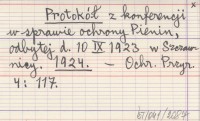 Protokół z konferencji
w sprawie ochrony Pienin,
odbytej d. 10 IX 1923 w Szczaw-
nicy. 1924. — Ochr. Przyr.
4: 117.